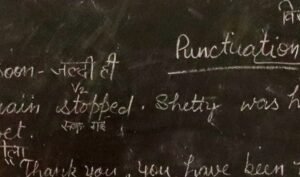 वि
Punctuation
soon - जल्दी ही
V₂
rain stopped. Shetty was h
रुक गई
et.
ीला
Thank you, you have been